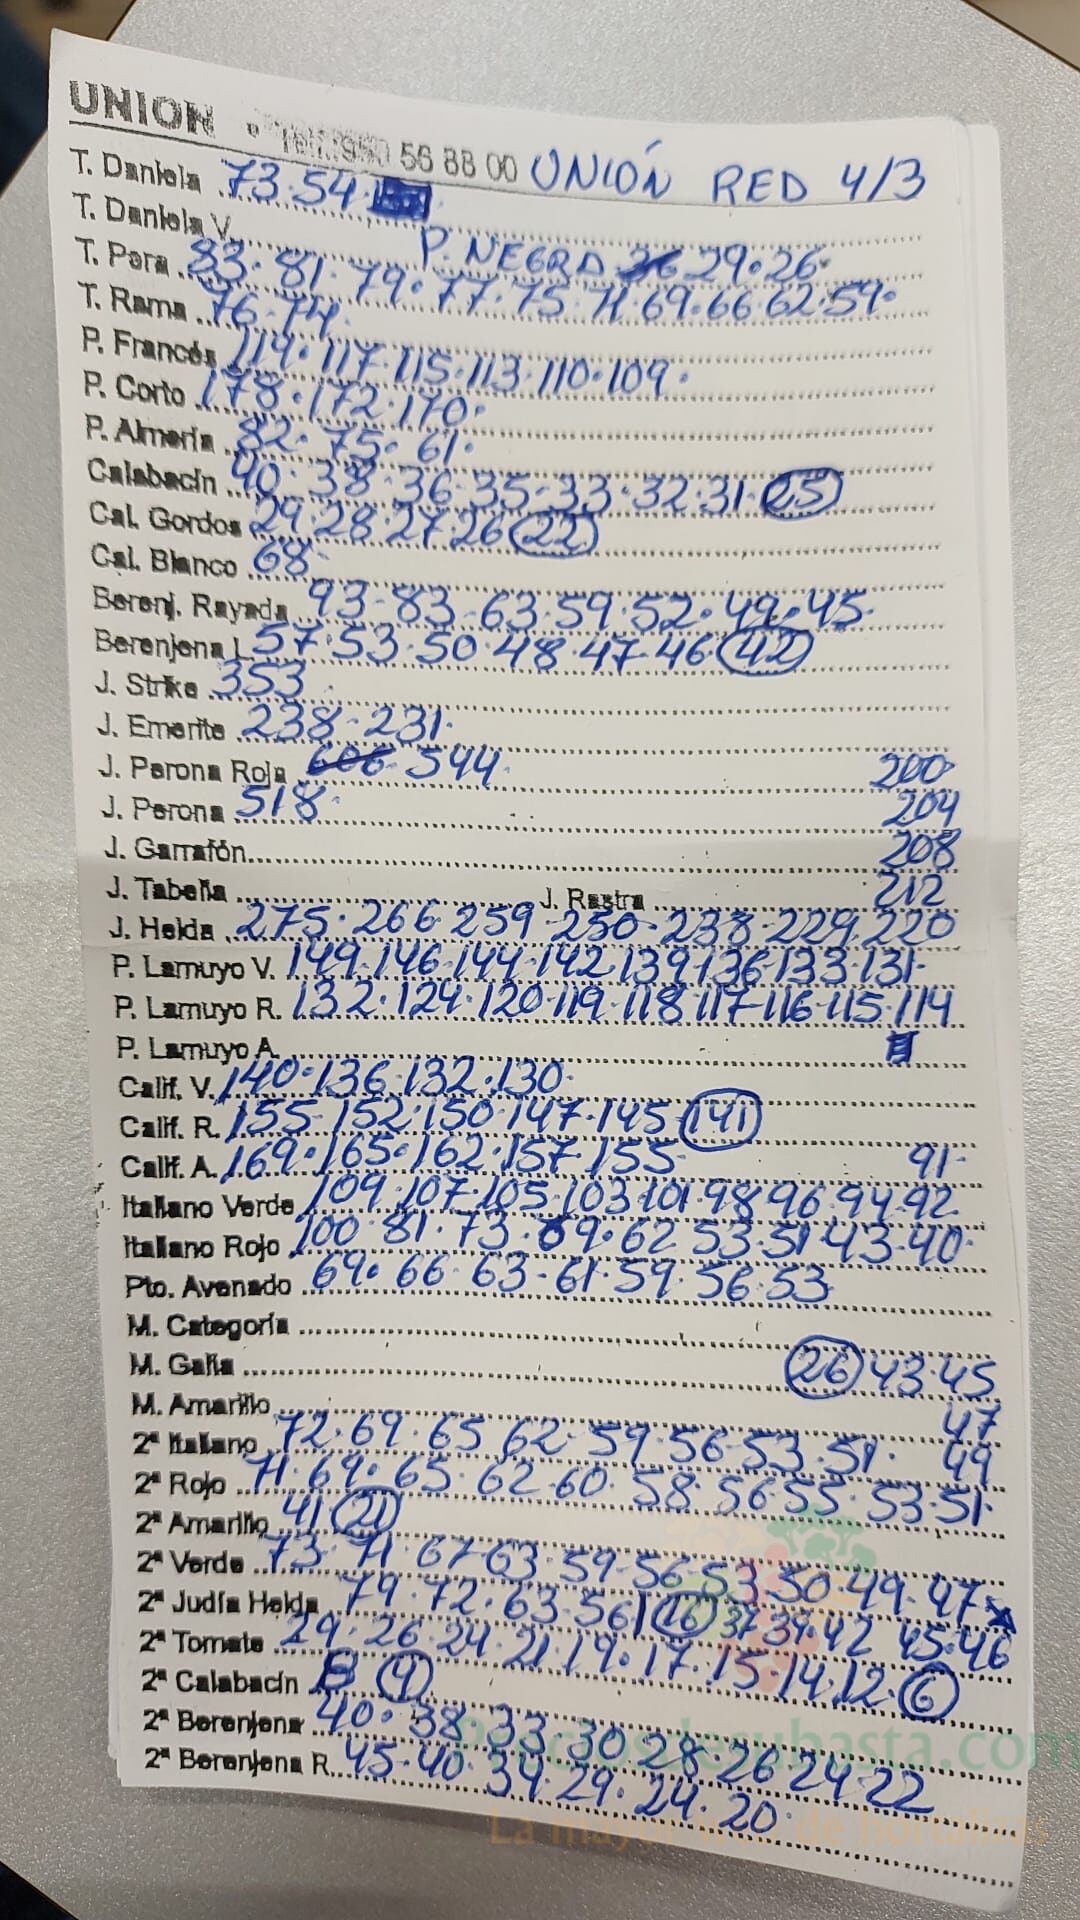 UNION Telf. 950 56 88 00 UNIÓN RED 4/3
T. Daniela 73·54
T. Daniela V. P. NEGRO 29·26·
T. Pera 83·81·79·77·75·71·69·66·62·59·
T. Rama 76·74
P. Francés 119·117·115·113·110·109·
P. Corto 178·172·170·
P. Almería 82·75·61·
Calabacín 40·38·36·35·33·32·31·25
Cal. Gordos 29·28·27·26 22
Cal. Blanco 68
Berenj. Rayada 93-83-63·59·52·49·45·
Berenjena L. 57·53·50·48·47·46·42
J. Strike 353
J. Emerite 238-231·
J. Perona Roja 606 544 200
J. Perona 518· 204
J. Garrafón 208
J. Tabella J. Rastra 212
J. Helda 275·266·259·250·238·229·220
P. Lamuyo V. 149·146·144·142·139·136·133·131·
P. Lamuyo R. 132·124·120·119·118·117·116·115·114
P. Lamuyo A.
Calif. V. 140·136·132·130·
Calif. R. 155·152·150·147·145·141
Calif. A. 169·165·162·157·155 91·
Italiano Verde 109·107·105·103·101·98·96·94·92
Italiano Rojo 100·81·73·69·62·53·51·43·40·
Pto. Avenado 69·66·63·61·59·56·53
M. Categoría
M. Galia 26 43·45
M. Amarillo 47
2ª Italiano 72·69·65·62·59·56·53·51· 49
2ª Rojo 71·69·65·62·60·58·56·55·53·51·
2ª Amarillo 41
2ª Verde 73·71·67·63·59·56·53·50·49·47
2ª Judía Helda 79·72·63·56 16 37 39·42 45·46
2ª Tomate 29·26·24·21·19·17·15·14·12·6
2ª Calabacín
2ª Berenjena 40·38·33·30·28·26·24·22
2ª Berenjena R. 45·40·34·29·24·20·
Preciosdesubasta.com
La mayor web de hortalizas